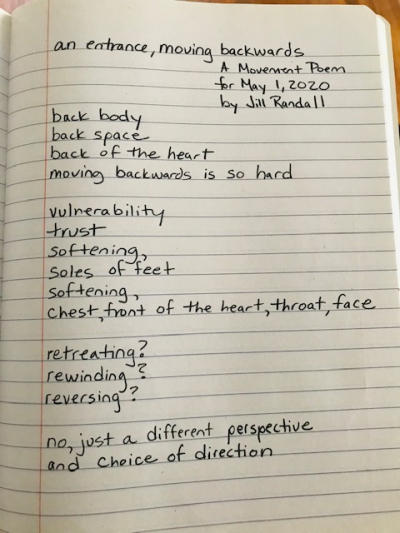 an entrance, moving backwards
A Movement Poem
for May 1, 2020
by Jill Randall
back body
back space
back of the heart
moving backwards is so hard
vulnerability
trust
softening,
soles of feet
softening,
chest, front of the heart, throat, face
retreating?
rewinding?
reversing?
no, just a different perspective
and choice of direction